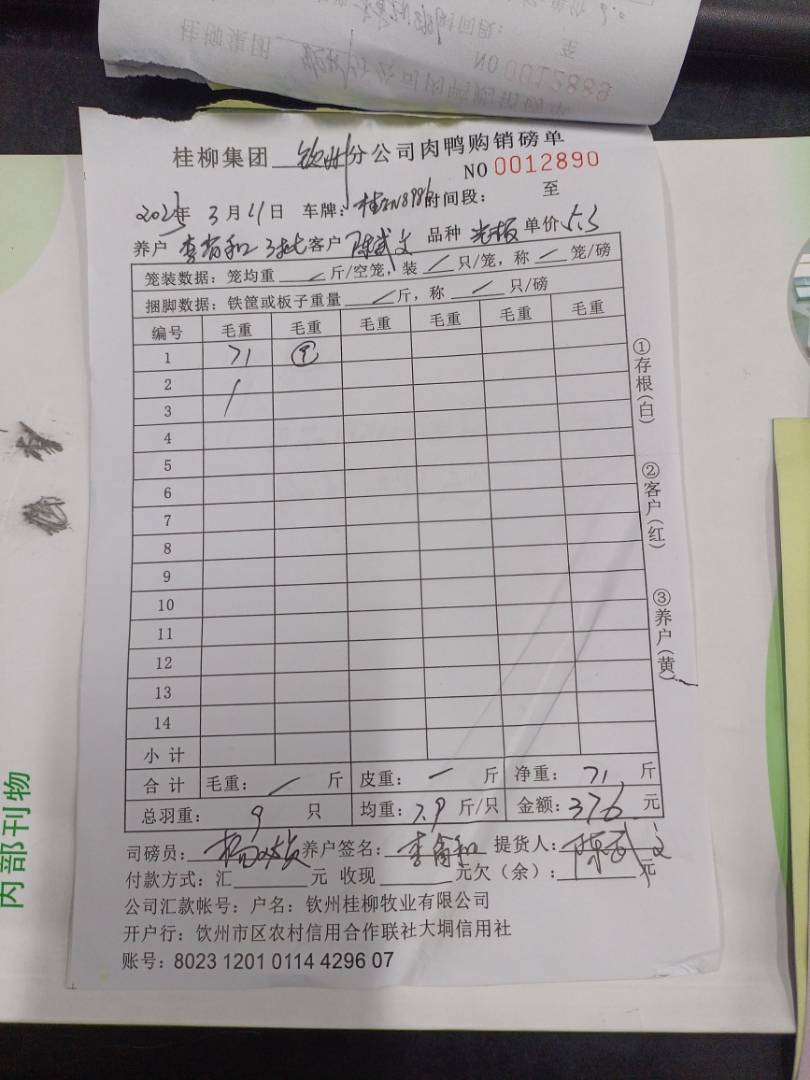 桂柳集团 NO 0012889
桂柳集团 钦州 分公司肉鸭购销磅单
NO 0012890
2023年 3月21日 车牌: 时间段: 至
养户 李富和 3批 客户 陈武文 品种 光板 单价 5.3
笼装数据: 笼均重 / 斤/空笼, 装 / 只/笼, 称 / 笼/磅
捆脚数据: 铁筐或板子重量 / 斤, 称 / 只/磅
编号 毛重 毛重 毛重 毛重 毛重 毛重
1 71 ⑨
2 /
3
4
5
6
7
8
9
10
11
12
13
14
小 计
合 计 毛重: / 斤 皮重: / 斤 净重: 71 斤
总羽重: 9 只 均重: 7.9 斤/只 金额: 376 元
司磅员: 养户签名: 李富和 提货人: 陈武文
付款方式: 汇 元 收现 元欠(余): 元
公司汇款帐号: 户名: 钦州桂柳牧业有限公司
开户行: 饮州市区农村信用合作联社大垌信用社
账号: 8023 1201 0114 4296 07
①存根(白)
②客户(红)
③养户(黄)
内部刊物